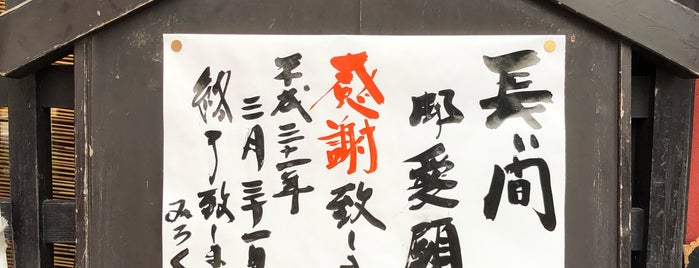 長い間
御愛顧
感謝致しま
平成三十一年
三月三十一日
終了致しま
みろく